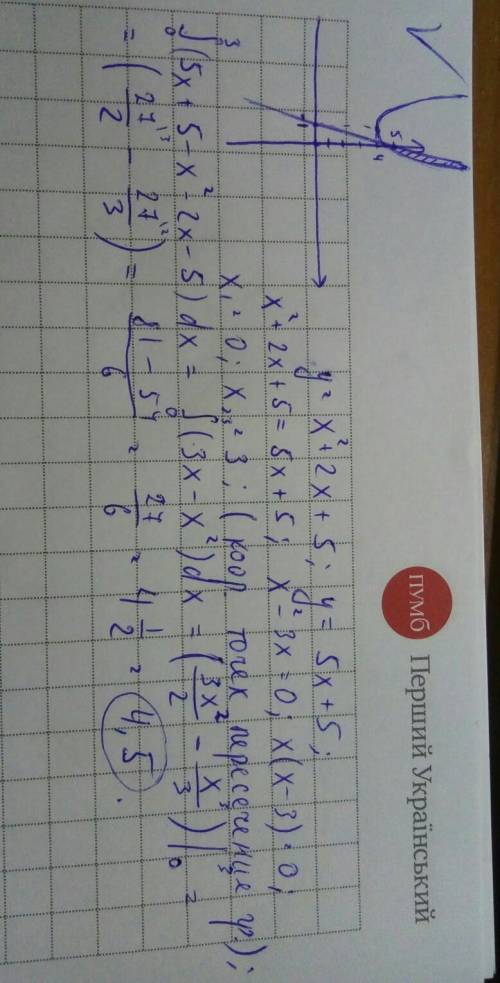 ПУМБ Перший Український
y = x² + 2x + 5; y = 5x + 5;
x² + 2x + 5 = 5x + 5; x² - 3x = 0; x(x - 3) = 0;
x₁ = 0; x₂ = 3; (коор. точек пересечение гр.);
∫₀³ (5x + 5 - x² - 2x - 5) dx = ∫₀³ (3x - x²) dx = (3x²/2 - x³/3)|₀³ =
= (27/2 - 27/3) = (81 - 54)/6 = 27/6 = 4 1/2 = 4,5.
5
4